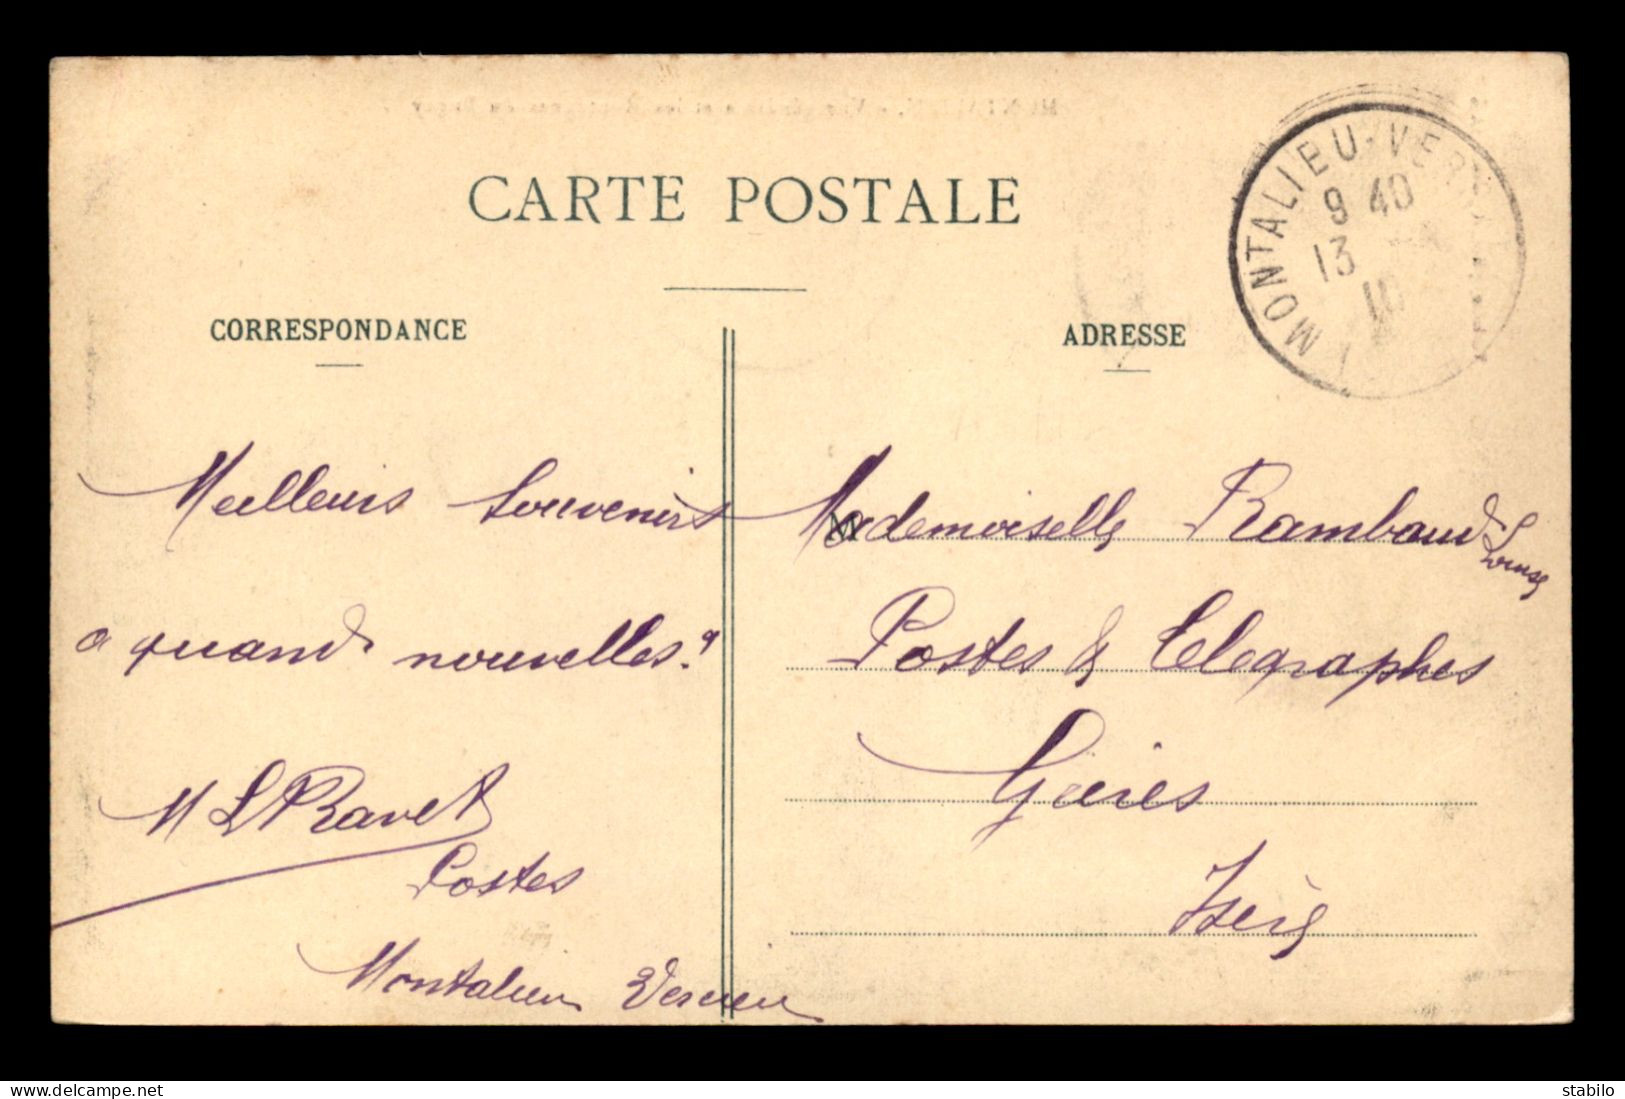 CARTE POSTALE
MONTALIEU-VER
9 40
13
10
CORRESPONDANCE
ADRESSE
Meilleurs Souvenirs
a quand nouvelles?
M L Ravet
Postes
Montalieu Vercieu
Mademoiselle Rambaud
Louise
Postes & Telegraphes
Isère
stabilo